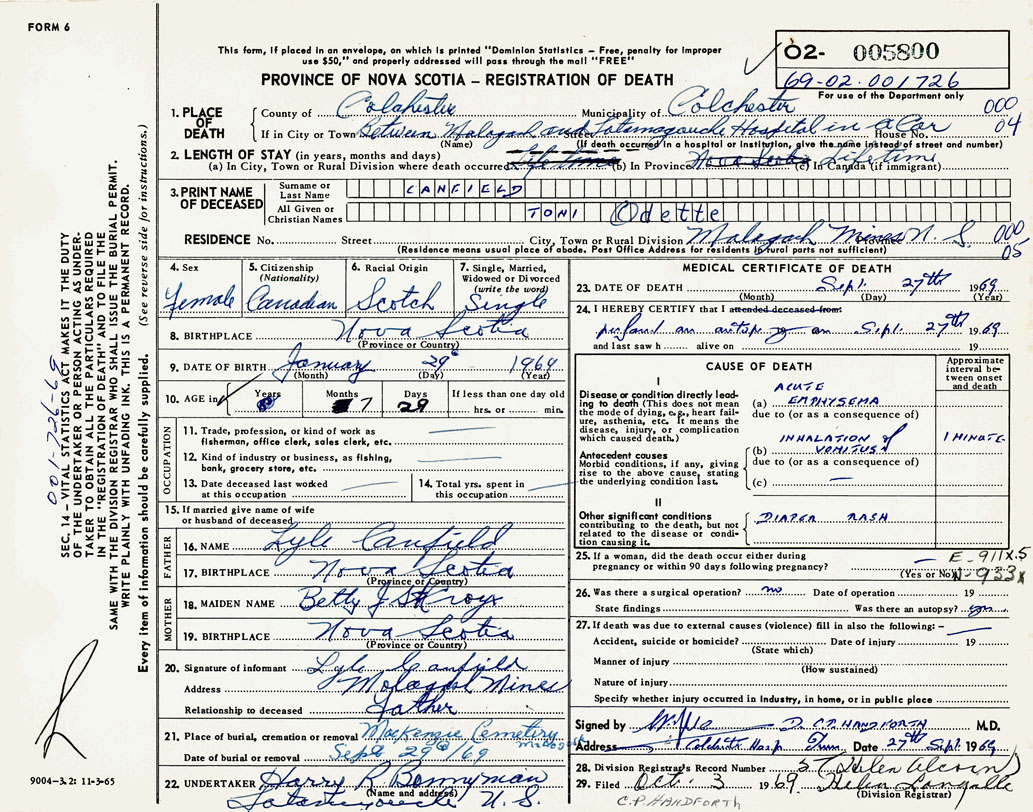 FORM 6
This form, if placed in an envelope, on which is printed "Dominion Statistics – Free, penalty for improper
use $50," and properly addressed will pass through the mail "FREE"
PROVINCE OF NOVA SCOTIA – REGISTRATION OF DEATH
O2- 005800
69-02-001726
For use of the Department only
1. PLACE OF DEATH
County of Colchester Municipality of Colchester 000
If in City or Town Between Malagash and Tatamagouche Hospital in a Car House No. 04
(Name) Street (If death occurred in a hospital or institution, give the name instead of street and number)
2. LENGTH OF STAY (in years, months and days)
(a) In City, Town or Rural Division where death occurred Life time (b) In Province Nova Scotia (c) In Canada (if immigrant) Lifetime
3. PRINT NAME OF DECEASED
Surname or Last Name CANFIELD
All Given or Christian Names TONI Odette
RESIDENCE No. Street City, Town or Rural Division Malagash Mines N. S. Province 000
(Residence means usual place of abode. Post Office Address for residents in rural parts not sufficient) 05
4. Sex
Female
5. Citizenship
(Nationality)
Canadian
6. Racial Origin
Scotch
7. Single, Married,
Widowed or Divorced
(write the word)
Single
8. BIRTHPLACE Nova Scotia
(Province or Country)
9. DATE OF BIRTH January 29 1969
(Month) (Day) (Year)
10. AGE in Years Months 7 Days 29 If less than one day old
hrs. or min.
OCCUPATION
11. Trade, profession, or kind of work as
fisherman, office clerk, sales clerk, etc.
12. Kind of industry or business, as fishing,
bank, grocery store, etc.
13. Date deceased last worked
at this occupation
14. Total yrs. spent in
this occupation
15. If married give name of wife
or husband of deceased
FATHER
16. NAME Lyle Canfield
17. BIRTHPLACE Nova Scotia
(Province or Country)
MOTHER
18. MAIDEN NAME Betty J St Croix
19. BIRTHPLACE Nova Scotia
(Province or Country)
20. Signature of informant Lyle Canfield
Address Malagash Mines
Relationship to deceased Father
21. Place of burial, cremation or removal MacKenzie Cemetery Malagash
Date of burial or removal Sept 29 /69
22. UNDERTAKER Harry R Bonnyman
(Name and address)
Tatamagouche N. S.
MEDICAL CERTIFICATE OF DEATH
23. DATE OF DEATH Sept. 27th 1969
(Month) (Day) (Year)
24. I HEREBY CERTIFY that I attended deceased from:
perform an autopsy on Sept. 27th 1969
and last saw h alive on 19
CAUSE OF DEATH
Approximate
interval be-
tween onset
and death
I
Disease or condition directly lead-
ing to death (This does not mean
the mode of dying, e.g., heart fail-
ure, asthenia, etc. It means the
disease, injury, or complication
which caused death.)
ACUTE
(a) EMPHYSEMA
due to (or as a consequence of)
Antecedent causes
Morbid conditions, if any, giving
rise to the above cause, stating
the underlying condition last.
INHALATION of
(b) VOMITUS 1 MINUTE
due to (or as a consequence of)
(c)
II
Other significant conditions
contributing to the death, but not
related to the disease or condi-
tion causing it.
DIAPER RASH
25. If a woman, did the death occur either during
pregnancy or within 90 days following pregnancy?
(Yes or No)
E-911X.5
N-933X
26. Was there a surgical operation? no Date of operation 19
State findings Was there an autopsy? yes
27. If death was due to external causes (violence) fill in also the following: –
Accident, suicide or homicide? Date of injury 19
(State which)
Manner of injury
(How sustained)
Nature of injury
Specify whether injury occurred in industry, in home, or in public place
Signed by D. C.P. HANDFORTH M.D.
Address Colchester Hosp Truro Date 27th Sept. 1969
28. Division Registrar's Record Number 57 (Helen Alcorn)
29. Filed Oct. 3 1969 Helen Langille
(Division Registrar)
C.P. HANDFORTH
SEC. 14 – VITAL STATISTICS ACT MAKES IT THE DUTY
OF THE UNDERTAKER OR PERSON ACTING AS UNDER-
TAKER TO OBTAIN ALL THE PARTICULARS REQUIRED
IN THE "REGISTRATION OF DEATH" AND TO FILE THE
SAME WITH THE DIVISION REGISTRAR WHO SHALL ISSUE THE BURIAL PERMIT.
WRITE PLAINLY WITH UNFADING INK. THIS IS A PERMANENT RECORD.
Every item of information should be carefully supplied. (See reverse side for instructions.)
001-726-69
9004-3.2: 11-3-65